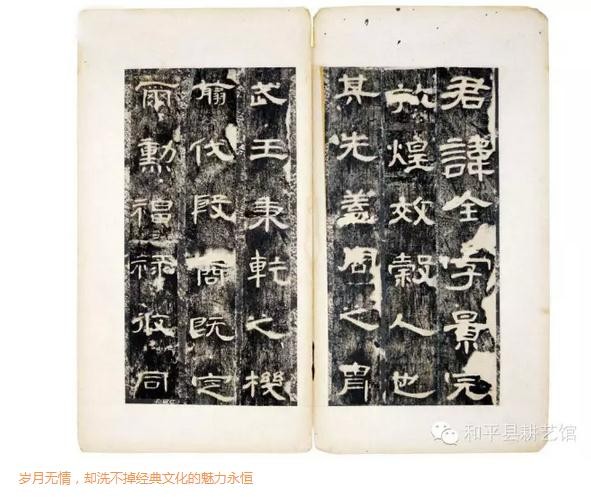 君諱全字景完
敦煌效穀人也
其先蓋周之胄
武王秉乾之機
翦伐殷商既定
爾勳福祿攸同
和平县耕艺馆
岁月无情，却洗不掉经典文化的魅力永恒